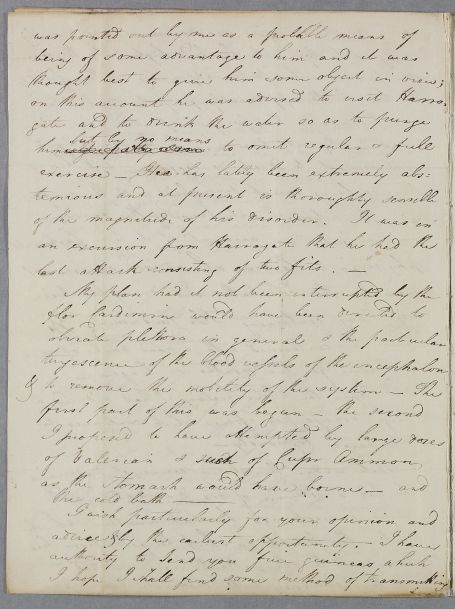 was pointed out by me as a probable means of
being of some advantage to him and it was
thought best to give him some object in view;
on this account he was advised to visit Harro-
gate and to drink the water so as to purge
but by no means
him to omit regular & full
exercise — He has lately been extremely abs-
temious and at present is thoroughly sensible
of the magnitude of his disorder. It was in
an excursion from Harragate that he had the
last attack consisting of two fits. —
My plan had it not been interrupted by the
flor Cardimin would have been directed to
obviate plethora in general & the particular
turgescence of the blood vessels of the encephalon
& to remove the mobility of the system — The
first part of this was begun — the second
I proposed to have attempted by large doses
of Valerian & such of Cupr Ammon
as the Stomach would have borne — and
the cold bath
I wish particularly for your opinion and
advice by the earliest opportunity. I have
authority to send you five guineas which
I hope I shall find some method of transmitting